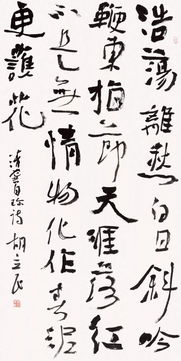 浩蕩離愁白日斜吟
鞭東指即天涯落紅
不是無情物化作春泥
更護花
清龔自珍詩 胡立民